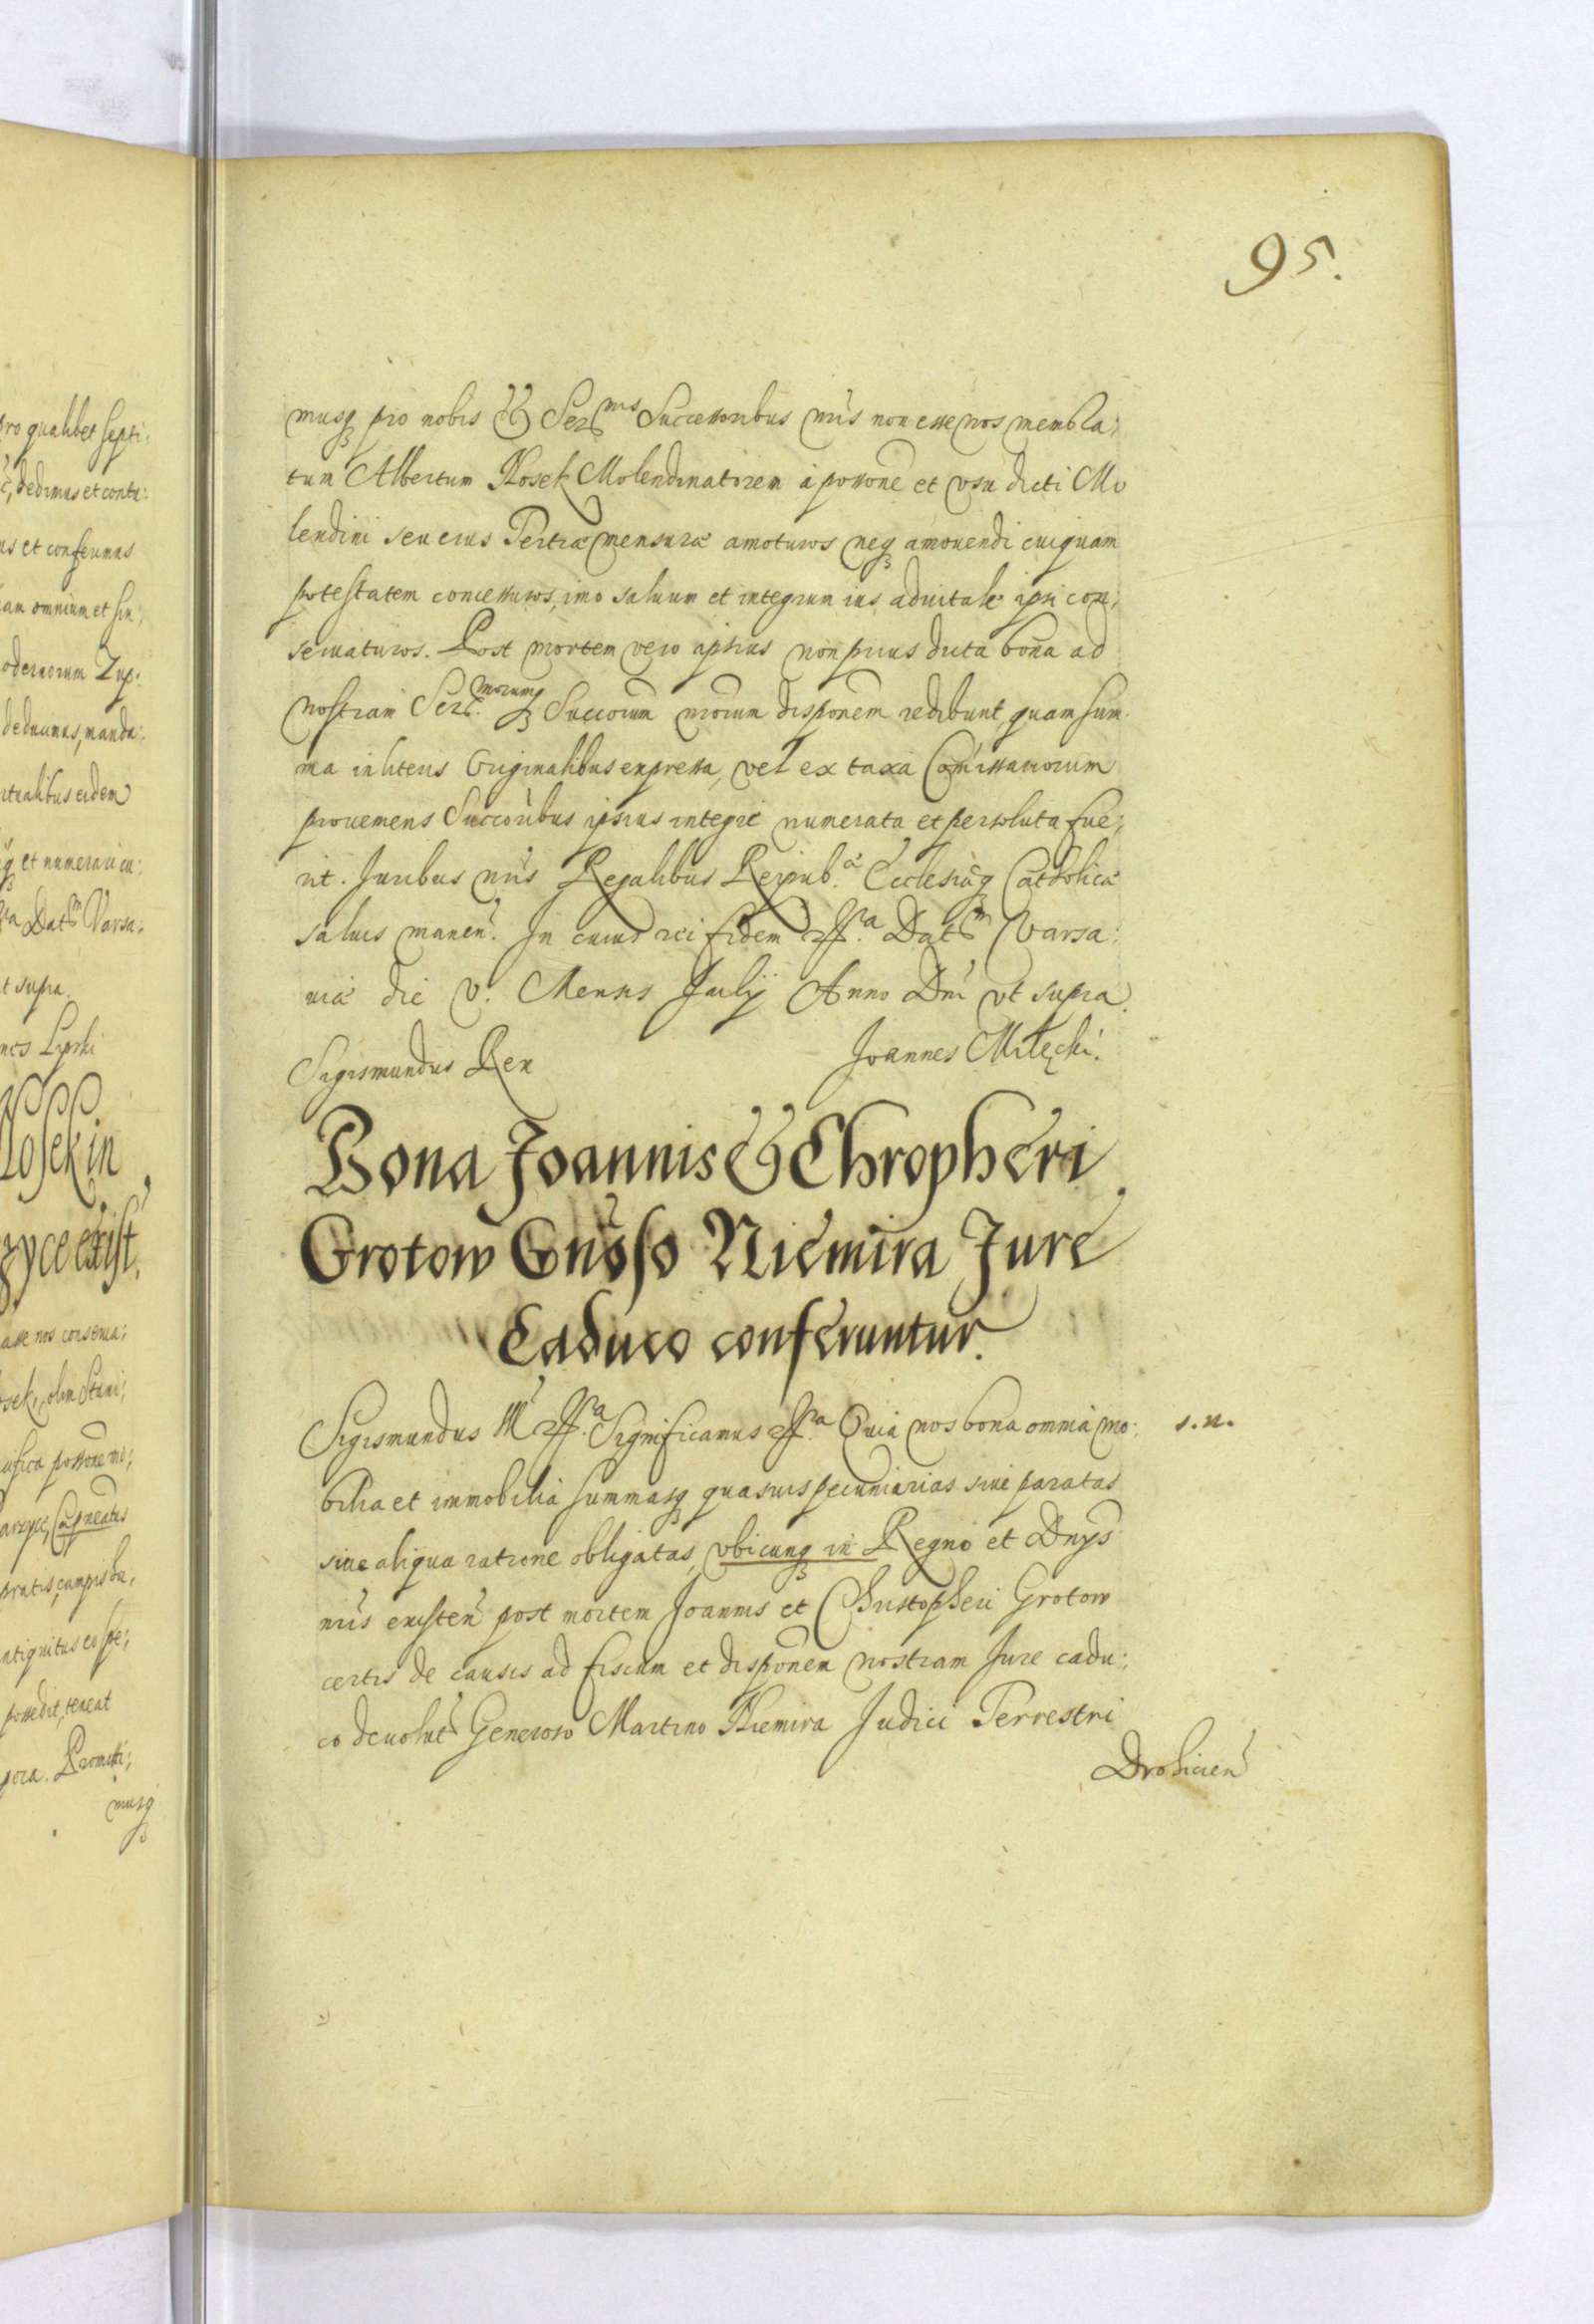 95.
musq pro nobis et Ser.mis Successoribus nris non esse nos memora;
tum Albertum Nosek Molendinatorem a possone et vsu dicti Mo
lendini seu eius Tertiae mensurae amoturos neq amouendi cuiquam
potestatem concessuros, imo saluum et integrum ius aduitale ipsi con;
seruaturos. Post mortem vero ipsius non prius dicta bona ad
nostram Ser. morumq Succorum nrorum disponem redibunt, quam sum
ma in literis Originalibus expressa, vel ex taxa Comissariorum
proueniens Succoribus ipsius integre numerata et persoluta fue;
rit. Juribus nris Regalibus Reipub.ae Ecclesiaeq Catholicae
saluis manen. In cuius rei fidem etc. Dat Varsa:
uiae die V. Mensis Julij Anno Dni vt supra.
Sigismundus Rex
Joannes Milęcki.
Bona Joannis et Chropheri
Grotow Gnoso Niemira Jure
Caduco conferuntur.
Sigismundus III etc. Significamus etc. Quia nos bona omnia mo: s.n.
bilia et immobilia summasq quasuis pecuniarias siue paratas
siue aliqua ratione obligatas, vbicunq in Regno et Dnys
nris existen post mortem Joannis et Christopheri Grotow
certis de causis ad fiscum et disponem nostram Jure cadu:
co deuolut Generoso Martino Niemira Judici Terrestri
Drohicien
pro qualibet septi:
dedimus et contu:
us et conferimus
iam omnium et sin;
odernorum Zup:
deducimus, manda:
eidem
et numerari cu:
Dat Varsa:
t supra.
Lipski
Nosek in
zyce exist.
asse nos conserua:
osek, olim Stani;
possone mo;
pratis, campis
ntiquitus
possedit, teneat
pora. Promitti;
musq